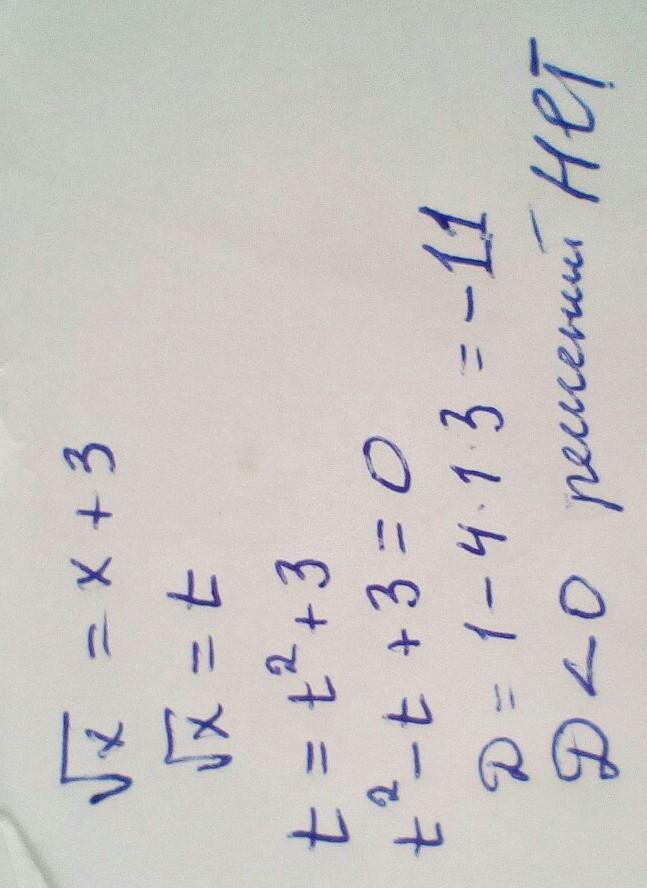 √x = x + 3
√x = t
t = t² + 3
t² - t + 3 = 0
D = 1 - 4 · 1 · 3 = -11
D < 0 решений нет